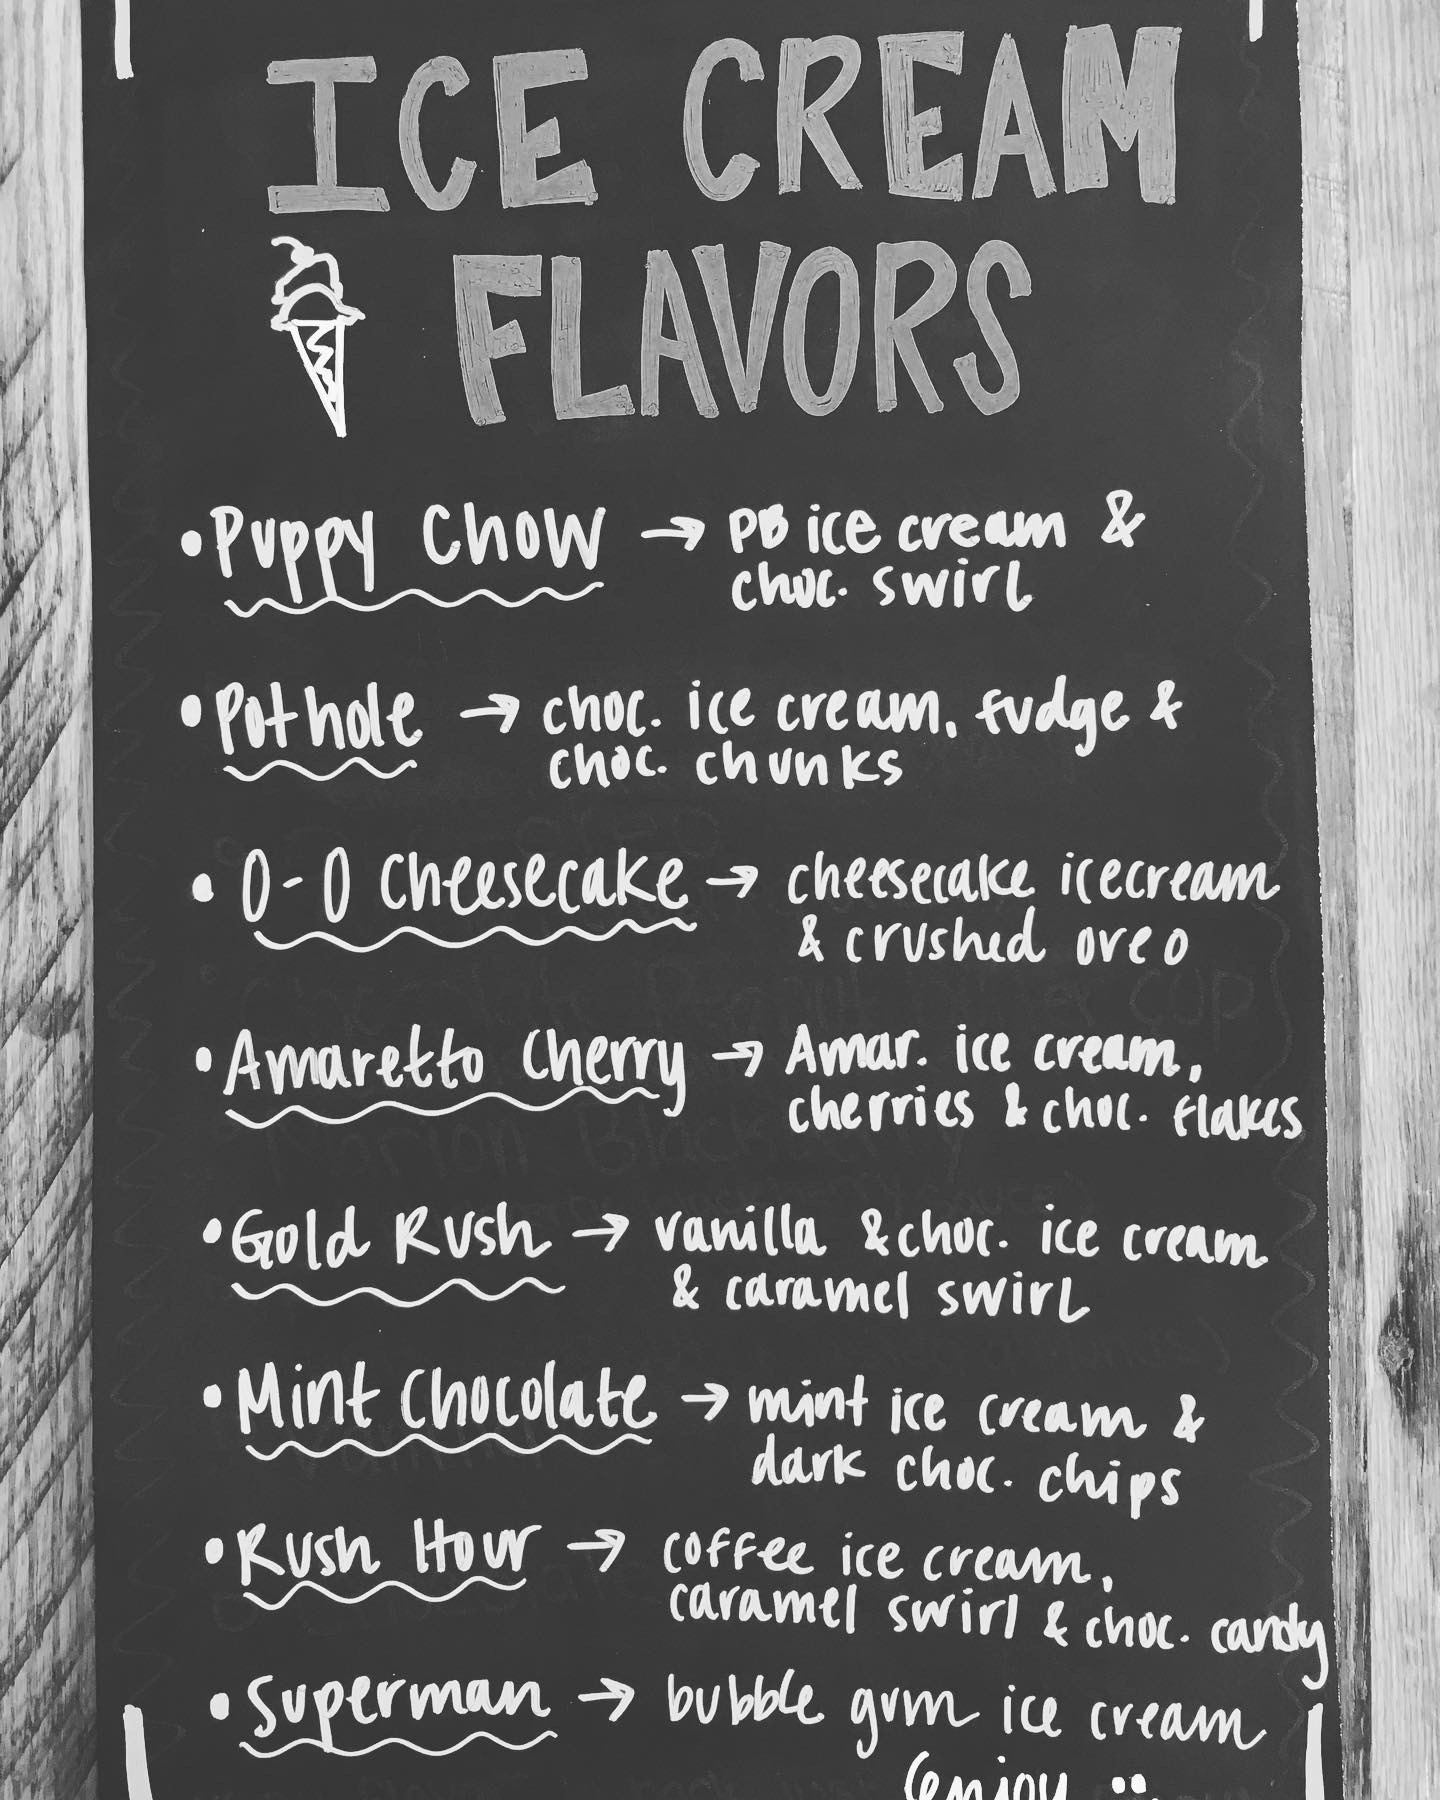 ICE CREAM
FLAVORS
• Puppy Chow → PB ice cream &
choc. swirl
• Pothole → choc. ice cream, fudge &
choc. chunks
• O-O Cheesecake → cheesecake icecream
& crushed oreo
• Amaretto Cherry → Amar. ice cream,
cherries & choc. flakes
• Gold Rush → vanilla & choc. ice cream
& caramel swirl
• Mint Chocolate → mint ice cream &
dark choc. chips
• Rush Hour → coffee ice cream,
caramel swirl & choc. candy
• Superman → bubble gum ice cream
enjoy